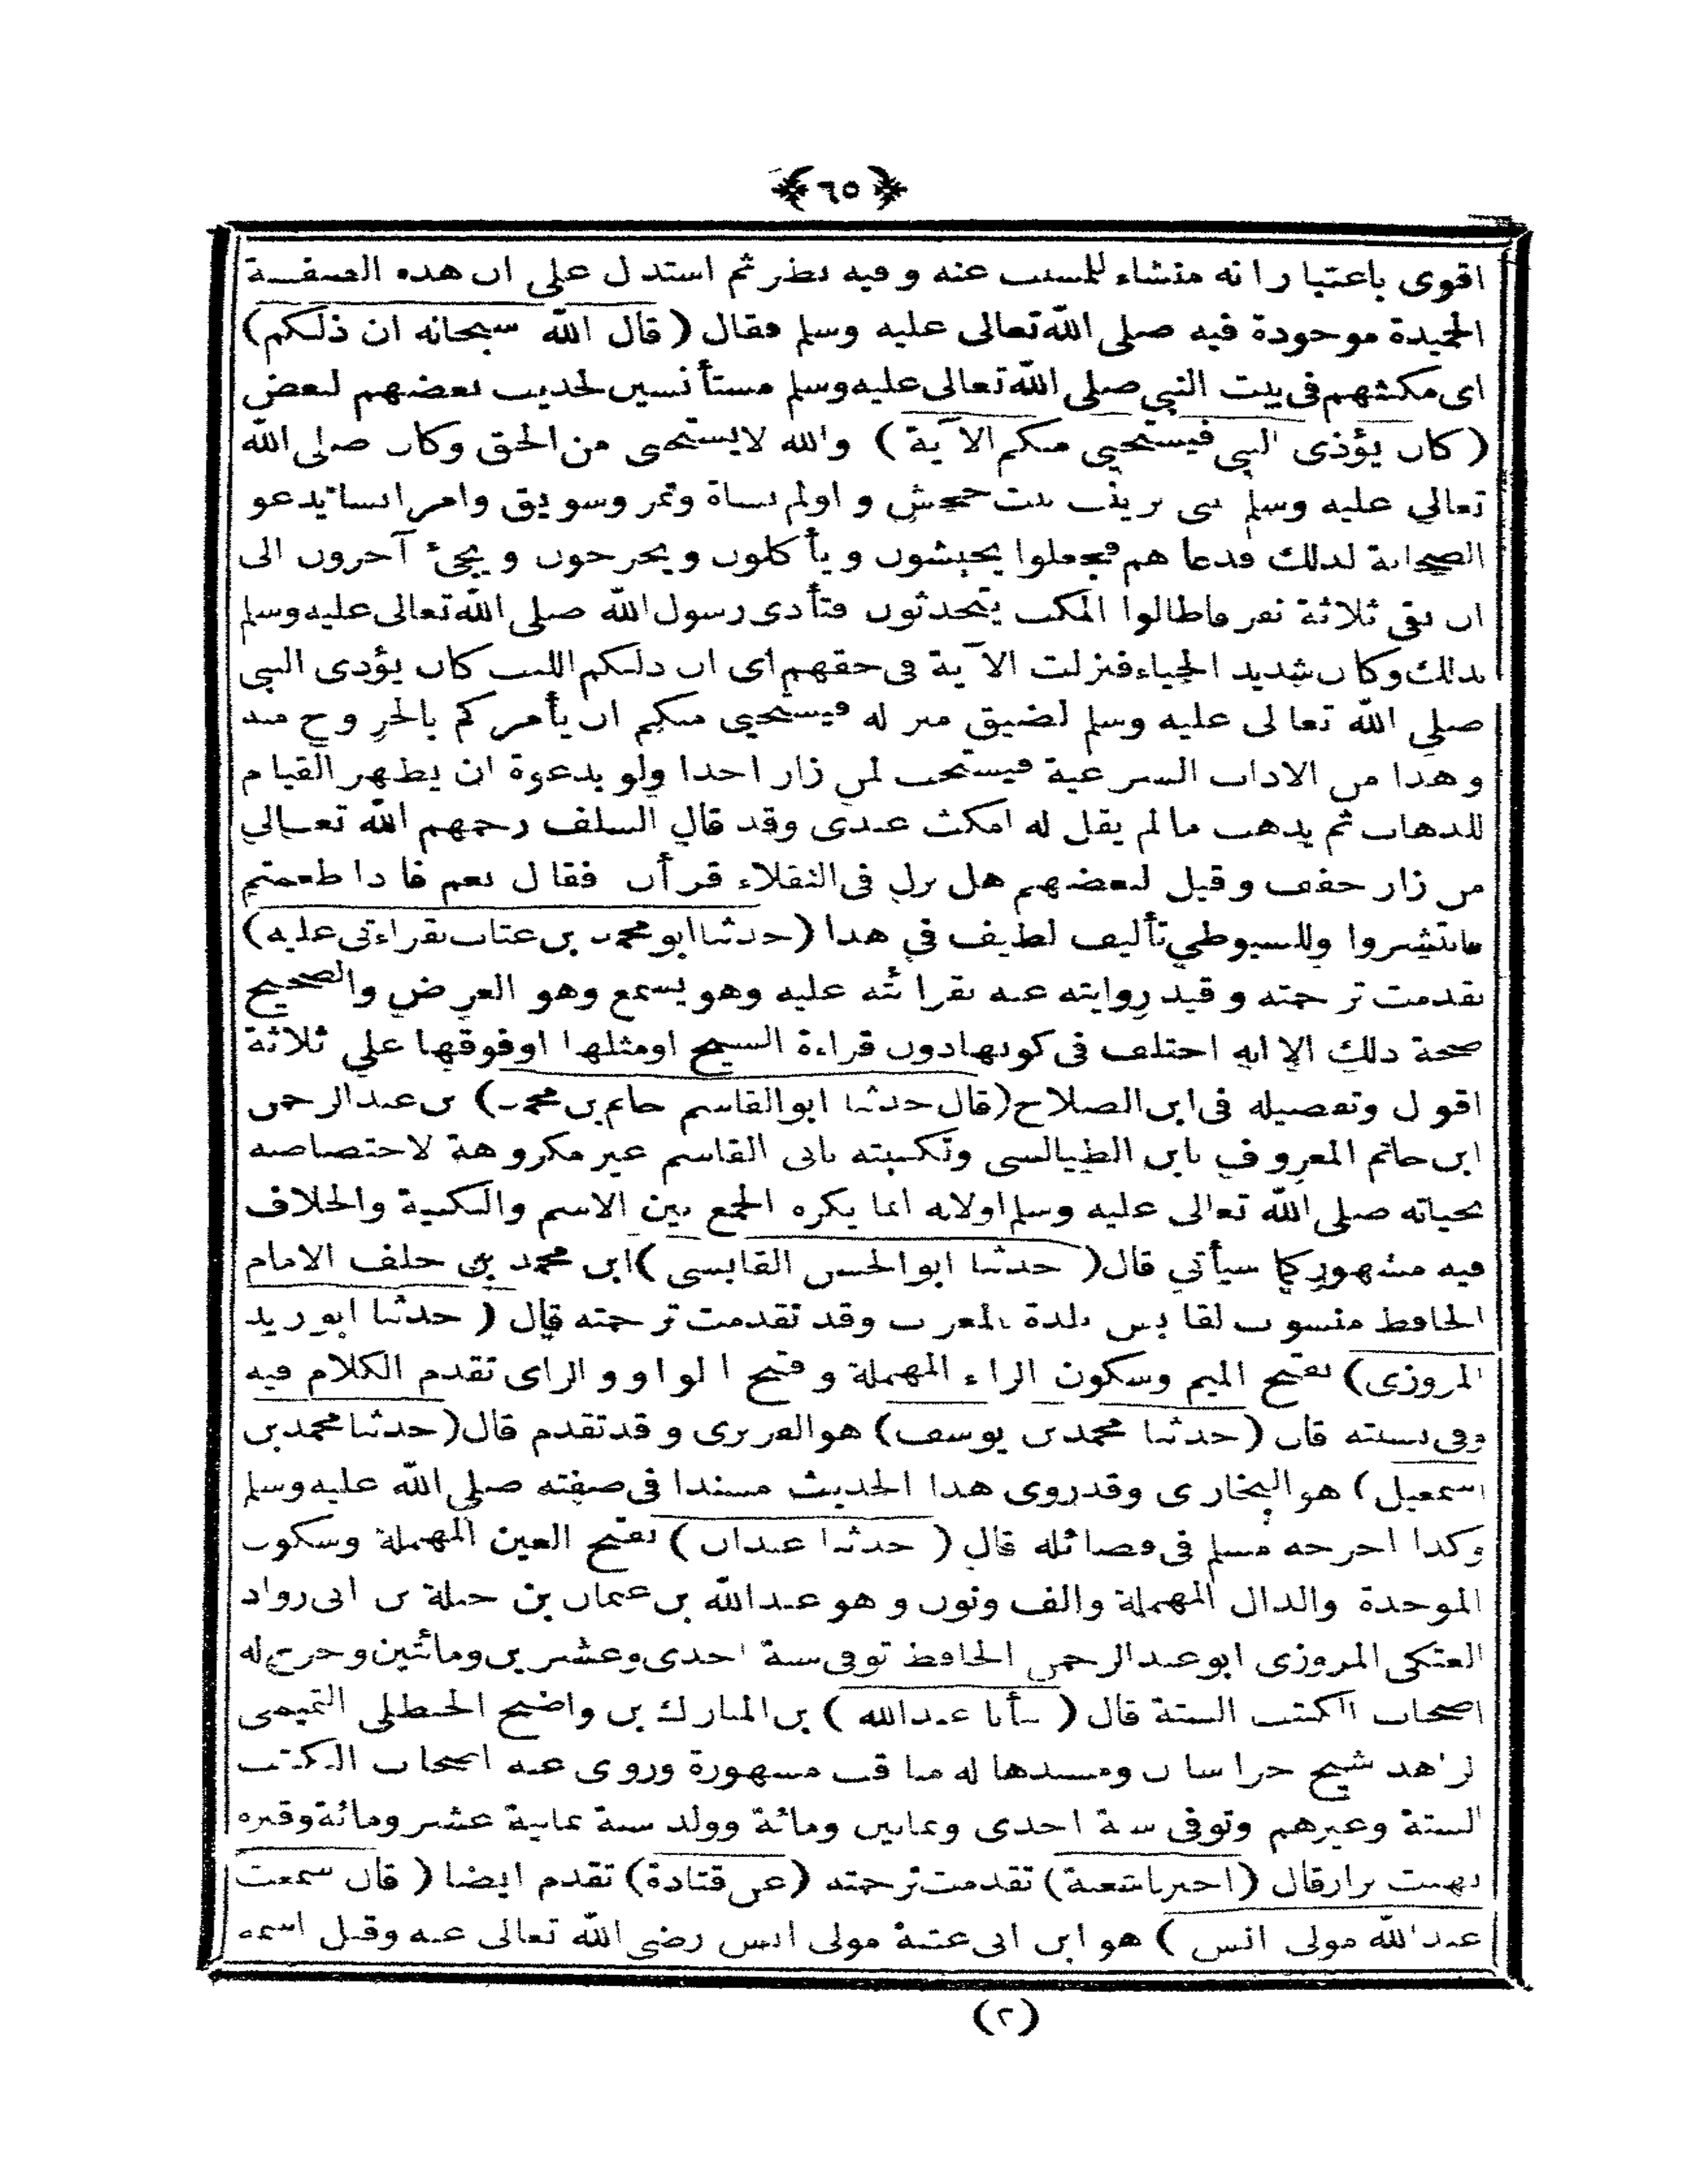 ﴿ ٦٥ ﴾
اقوى باعتبارانه منشاء للمسبب عنه وفيه نظر ثم استدل على ان هذه الصفة
الحميدة موجودة فيه صلى الله تعالى عليه وسلم فقال (قال الله سبحانه ان ذلكم)
اى مكثهم فى بيت النبى صلى الله تعالى عليه وسلم مستأنسين لحديث بعضهم لبعض
(كان يؤذى النبى فيستحيى منكم الآية) والله لايستحى من الحق وكان صلى الله
تعالى عليه وسلم بنى بزينب بنت جحش واولم بشاة وتمر وسويق وامر انسا يدعو
الصحابة لذلك فدعاهم فجعلوا يجيئون ويأكلون ويخرجون ويجئ آخرون الى
ان بقى ثلاثة نفر فاطالوا المكث يتحدثون فتأذى رسول الله صلى الله تعالى عليه وسلم
بذلك وكان شديد الحياء فنزلت الآية فى حقهم اى ان ذلكم اللبث كان يؤذى النبى
صلى الله تعالى عليه وسلم لضيق منزله فيستحيى منكم ان يأمركم بالخروج منه
وهذا من الاداب الشرعية فيستحب لمن زار احدا ولو بدعوة ان يظهر القيام
للذهاب ثم يذهب مالم يقل له امكث عندى وقد قال السلف رحمهم الله تعالى
من زار خفف وقيل لبعضهم هل نزل فى الثقلاء قرأن فقال نعم فاذا طعمتم
فانتشروا وللسيوطى تأليف لطيف فى هذا (حدثنا ابو محمد بن عتاب بقراءتى عليه)
تقدمت ترجمته وقيد روايته عنه بقرائته عليه وهو يسمع وهو العرض والصحيح
صحة ذلك الا انه اختلف فى كونها دون قراءة الشيخ اومثلها اوفوقها على ثلاثة
اقول وتفصيله فى ابن الصلاح (قال حدثنا ابوالقاسم حاتم بن محمد) بن عبدالرحمن
ابن حاتم المعروف بابن الطيالسى وتكنيته بابى القاسم غير مكروهة لاختصاصه
بحياته صلى الله تعالى عليه وسلم اولانه انما يكره الجمع بين الاسم والكنية والخلاف
فيه مشهور كما سيأتى قال (حدثنا ابوالحسن القابسى) ابن محمد بن خلف الامام
الحافظ منسوب لقابس بلدة بالمغرب وقد تقدمت ترجمته قال (حدثنا ابوزيد
المروزى) بفتح الميم وسكون الراء المهملة وفتح الواو والزاى تقدم الكلام فيه
وفى نسبته قال (حدثنا محمد بن يوسف) هو الفربرى وقد تقدم قال (حدثنا محمد بن
اسمعيل) هو البخارى وقدروى هذا الحديث مسندا فى صفته صلى الله عليه وسلم
وكذا اخرجه مسلم فى فضائله قال (حدثنا عبدان) بفتح العين المهملة وسكون
الموحدة والدال المهملة والف ونون وهو عبدالله بن عثمان بن جبلة بن ابى رواد
العتكى المروزى ابو عبدالرحمن الحافظ توفى سنة احدى وعشرين ومائتين وخرج له
اصحاب الكتب الستة قال (انبأنا عبدالله) بن المبارك بن واضح الحنظلى التميمى
الزاهد شيخ خراسان ومسندها له مناقب مشهورة وروى عنه اصحاب الكتب
الستة وغيرهم وتوفى سنة احدى وثمانين ومائة وولد سنة ثمانية عشر ومائة وقبره
بهيت يزار قال (اخبرنا شعبة) تقدمت ترجمته (عن قتادة) تقدم ايضا (قال سمعت
عبدالله مولى انس) هو ابن ابى عتبة مولى انس رضى الله تعالى عنه وقيل اسمه
(٢)